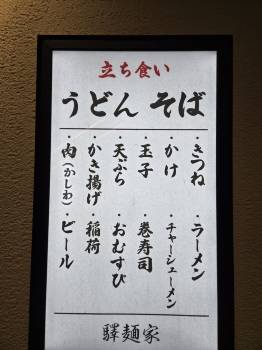 立ち食い
うどん そば
・きつね ・ラーメン
・かけ ・チャーシューメン
・玉子 ・巻寿司
・天ぷら ・おむすび
・かき揚げ ・稲荷
・肉(かしわ) ・ビール
驛麺家